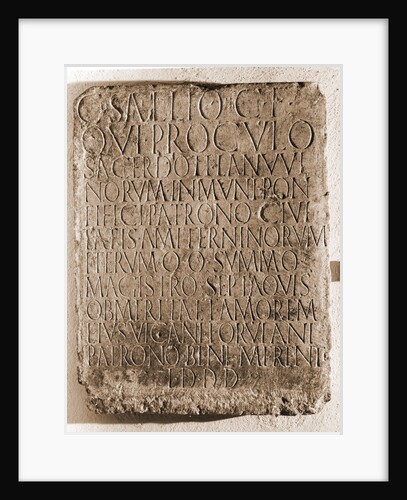 C SALLIO C F
QVI PROCVLO
SACERDOTI LANVVI
NORVM INMVNI PON
TIFICI PATRONO CIVI
TATIS AMITERNINORVM
ITERVM Q Q SVMMO
MAGISTRO SEPTAQVIS
OB MERITA ET AMOREM
EIVS VICANI FORVLANI
PATRONO BENE MERENT
L D D D